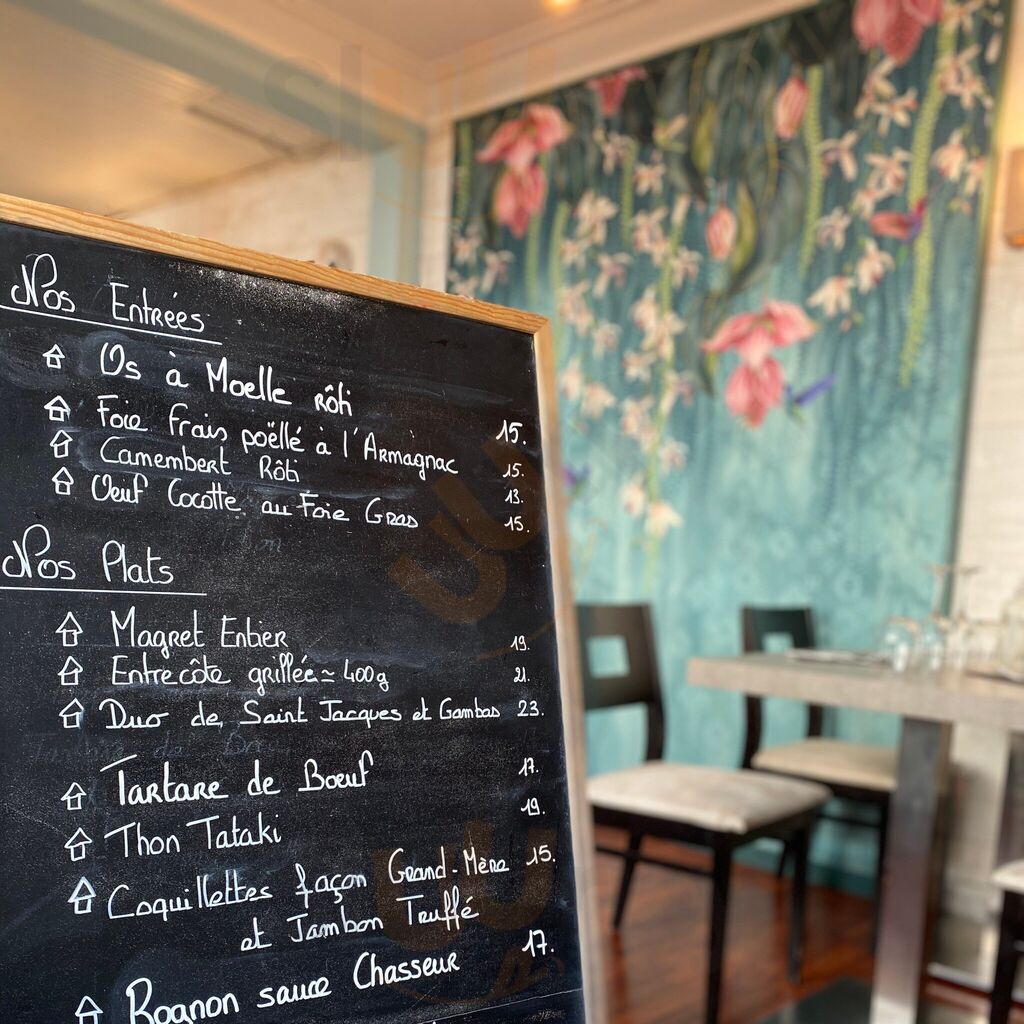 Nos Entrées
Os à Moelle rôti 15.
Foie frais poëllé à l'Armagnac 15.
Camembert Rôti 13.
Oeuf Cocotte au Foie Gras 15.
Nos Plats
Magret Entier 19.
Entrecôte grillée ≃ 400g 21.
Duo de Saint Jacques et Gambas 23.
Tartare de Boeuf 17.
Thon Tataki 19.
Coquillettes façon Grand-Mère 15.
et Jambon Truffé
Rognon sauce Chasseur 17.